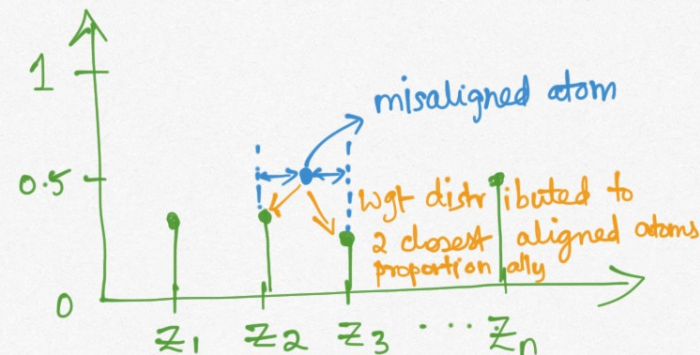 1
misaligned atom
0.5
wgt distributed to
2 closest aligned atoms
proportionally
0
Z1 Z2 Z3 ... Zn